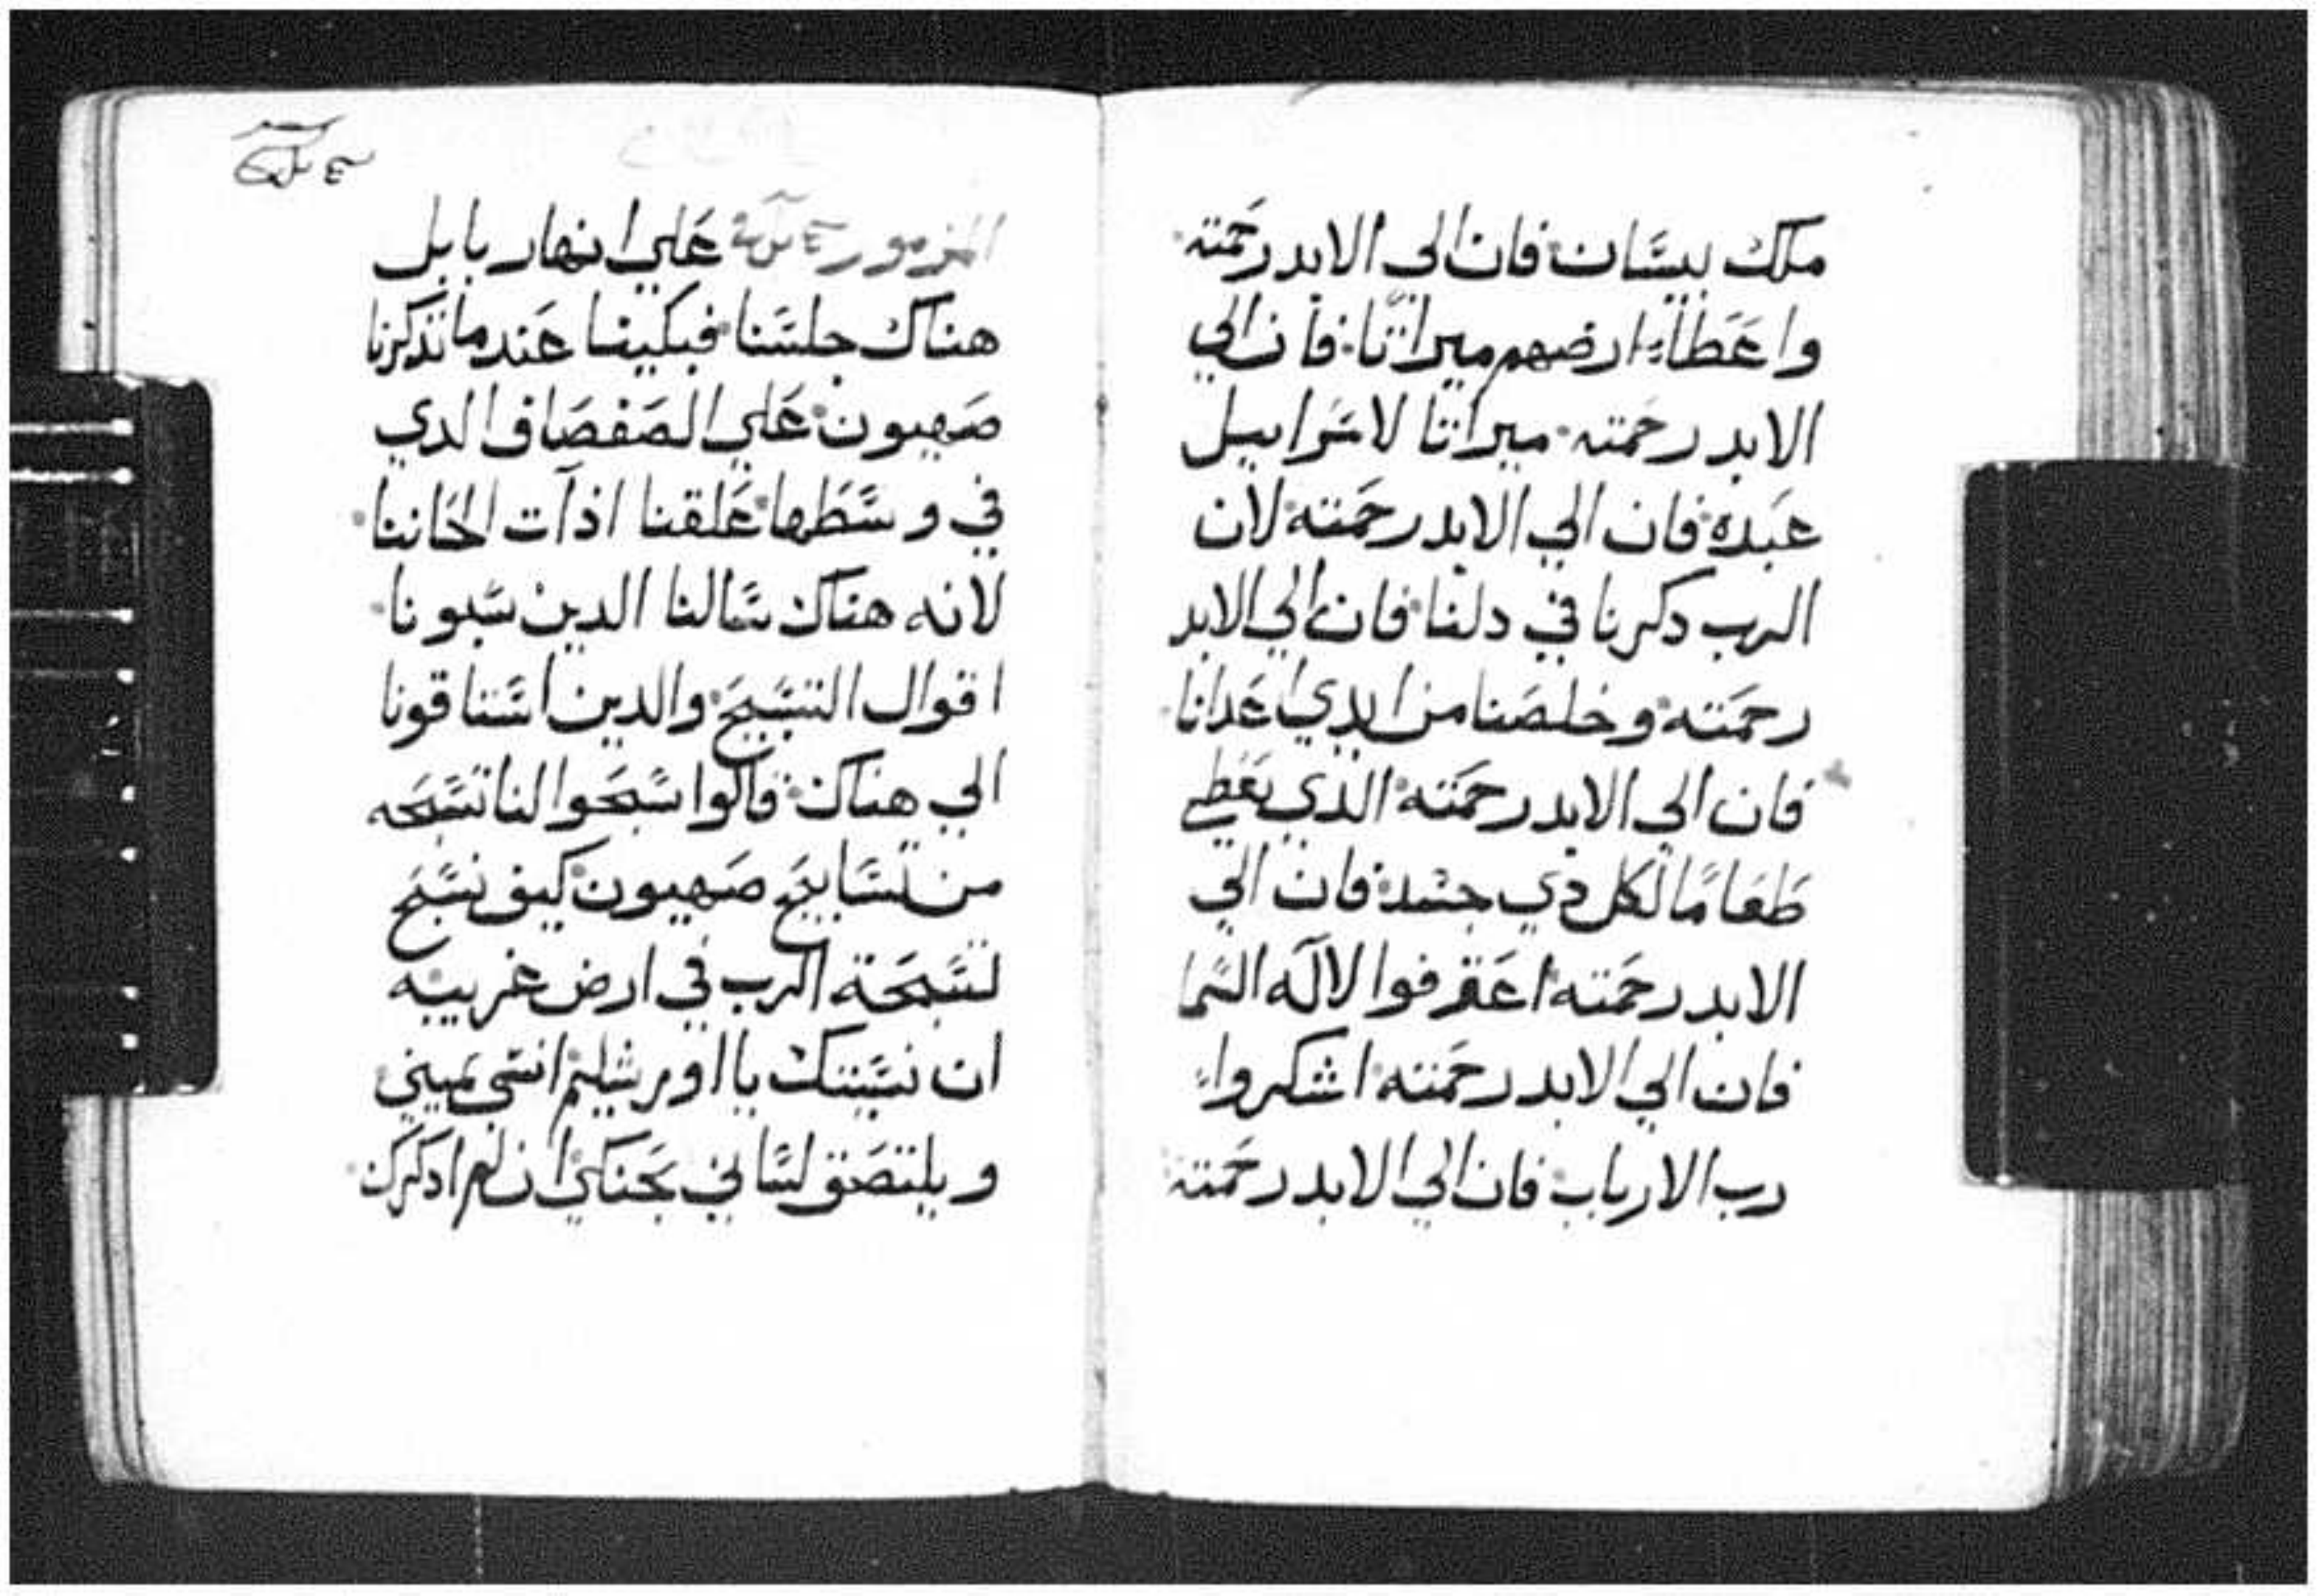 ملك بيسان فان الي الابد رحمته
واعطاء ارضهم ميراثا فان الي
الابد رحمته ميراتا لاسراييل
عبده فان الي الابد رحمته لان
الرب دكرنا في دلنا فان الي الابد
رحمته وخلصنا من ايدي اعدانا
فان الي الابد رحمته الذي يعطي
طعاما لكل دي جسد فان الي
الابد رحمته اعترفوا لالاه السما
فان الي الابد رحمته اشكروا
رب الارباب فان الي الابد رحمته
المزمور علي انهار بابل
هناك جلسنا فبكينا عند ما تذكرنا
صهيون علي الصفصاف الدي
في وسطها علقنا اذات الحاننا
لانه هناك سالنا الدين سبونا
اقوال التسبيح والدين استاقونا
الي هناك قالوا سبحوا لنا تسبحه
من تسابيح صهيون كيف نسبح
تسبحة الرب في ارض غريبه
ان نسيتك يا اورشليم انسي يميني
ويلتصق لساني بحنكي ان لم ادكرك